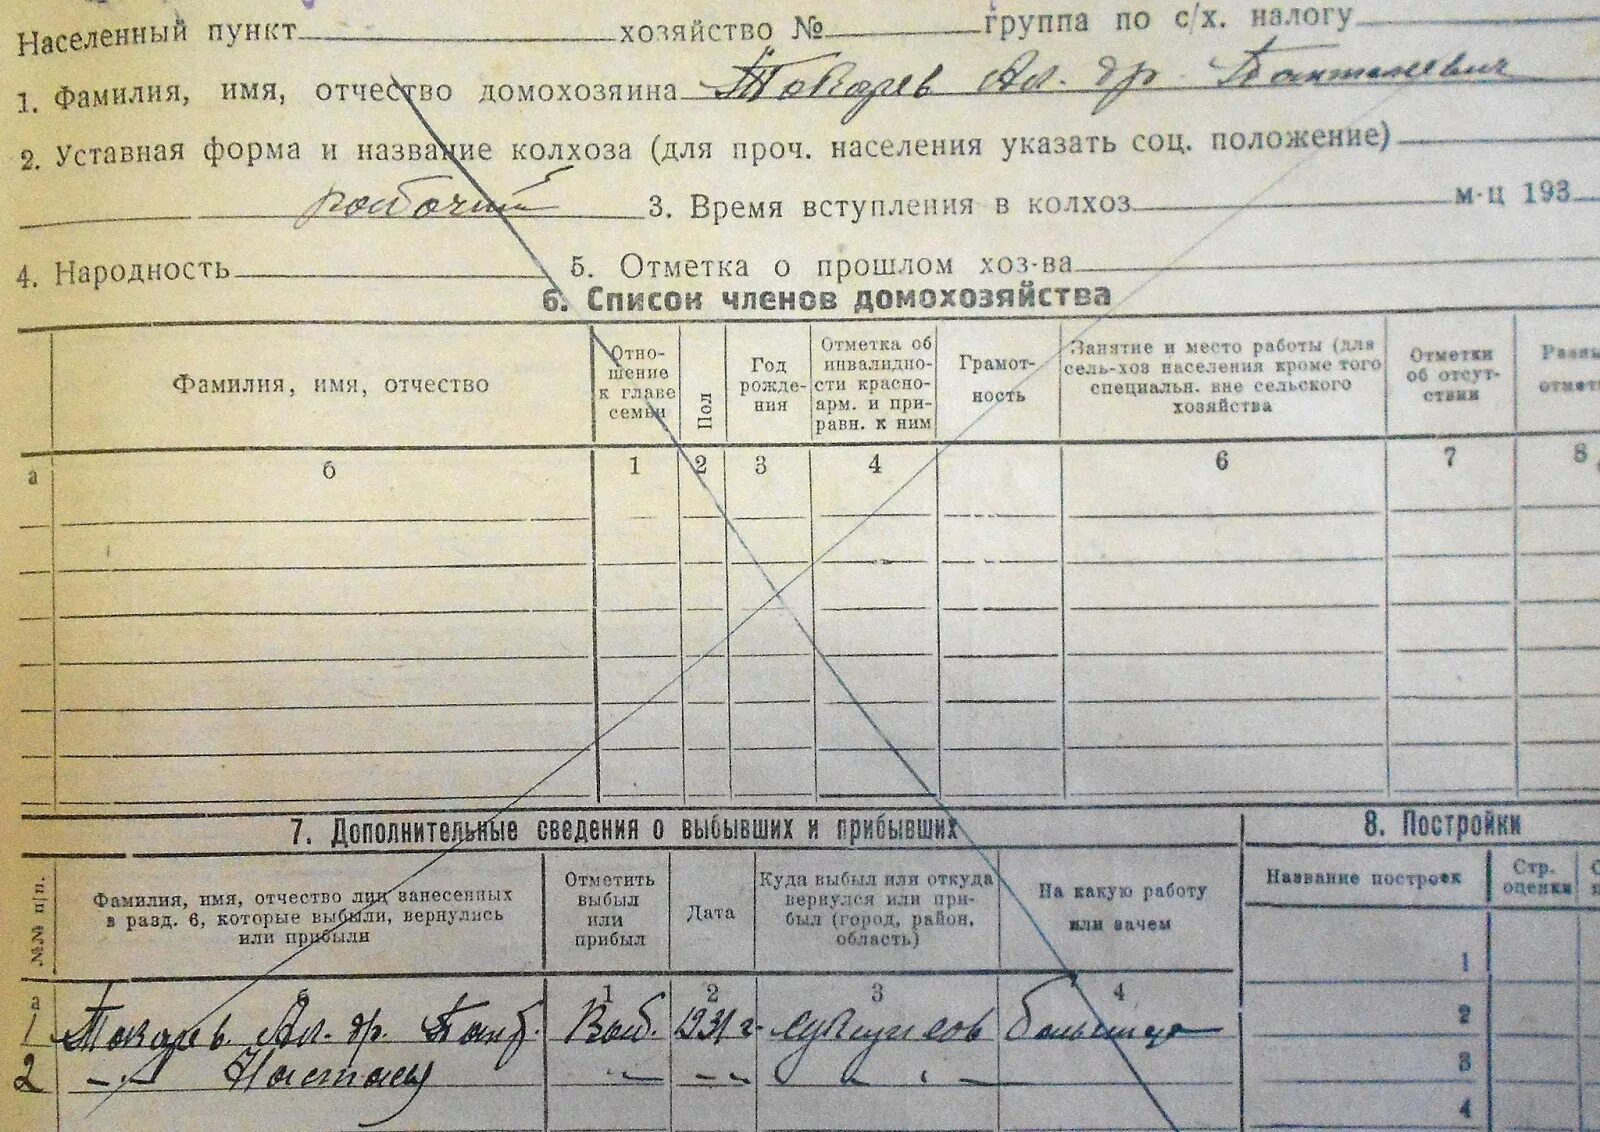 Населенный пункт хозяйство № группа по с/х. налогу
1. Фамилия, имя, отчество домохозяина Токарев Ал-др.
2. Уставная форма и название колхоза (для проч. населения указать соц. положение)
рабочий 3. Время вступления в колхоз м-ц 193
4. Народность 5. Отметка о прошлом хоз-ва
6. Список членов домохозяйства
Фамилия, имя, отчество
Отно-
шение
к главе
семьи
Пол
Год
рожде-
ния
Отметка об
инвалидно-
сти красно-
арм. и при-
равн. к ним
Грамот-
ность
Занятие и место работы (для
сель-хоз населения кроме того
специальн. вне сельского
хозяйства
Отметки
об отсут-
ствии
а б 1 2 3 4 6 7 8
7. Дополнительные сведения о выбывших и прибывших
№№ п/п.
Фамилия, имя, отчество лиц занесенных
в разд. 6, которые выбыли, вернулись
или прибыли
Отметить
выбыл
или
прибыл
Дата
Куда выбыл или откуда
вернулся или при-
был (город, район,
область)
На какую работу
или зачем
а б 1 2 3 4
1 Токарев Ал-др. Выб. 1931 г.
2 -"- -"- -"- -"-
8. Постройки
Название построек
Стр.
оценки
1
2
3
4